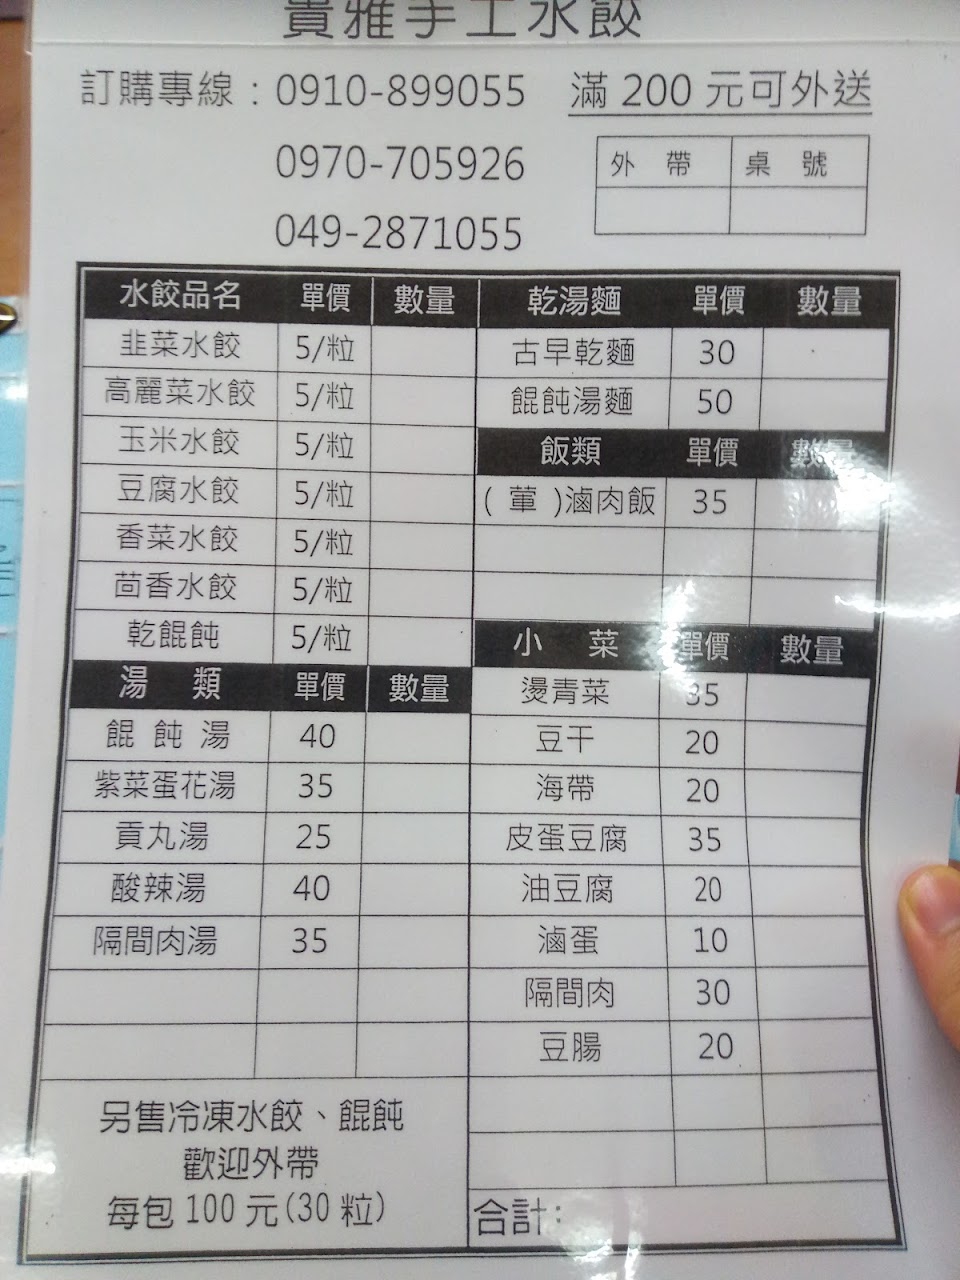 貴雅手工水餃
訂購專線：0910-899055 滿 200 元可外送
0970-705926
049-2871055
外 帶 桌 號
水餃品名 單價 數量
韭菜水餃 5/粒
高麗菜水餃 5/粒
玉米水餃 5/粒
豆腐水餃 5/粒
香菜水餃 5/粒
茴香水餃 5/粒
乾餛飩 5/粒
湯 類 單價 數量
餛 飩 湯 40
紫菜蛋花湯 35
貢丸湯 25
酸辣湯 40
隔間肉湯 35
另售冷凍水餃、餛飩
歡迎外帶
每包 100 元(30 粒)
乾湯麵 單價 數量
古早乾麵 30
餛飩湯麵 50
飯類 單價 數量
( 葷 )滷肉飯 35
小 菜 單價 數量
燙青菜 35
豆干 20
海帶 20
皮蛋豆腐 35
油豆腐 20
滷蛋 10
隔間肉 30
豆腸 20
合計: